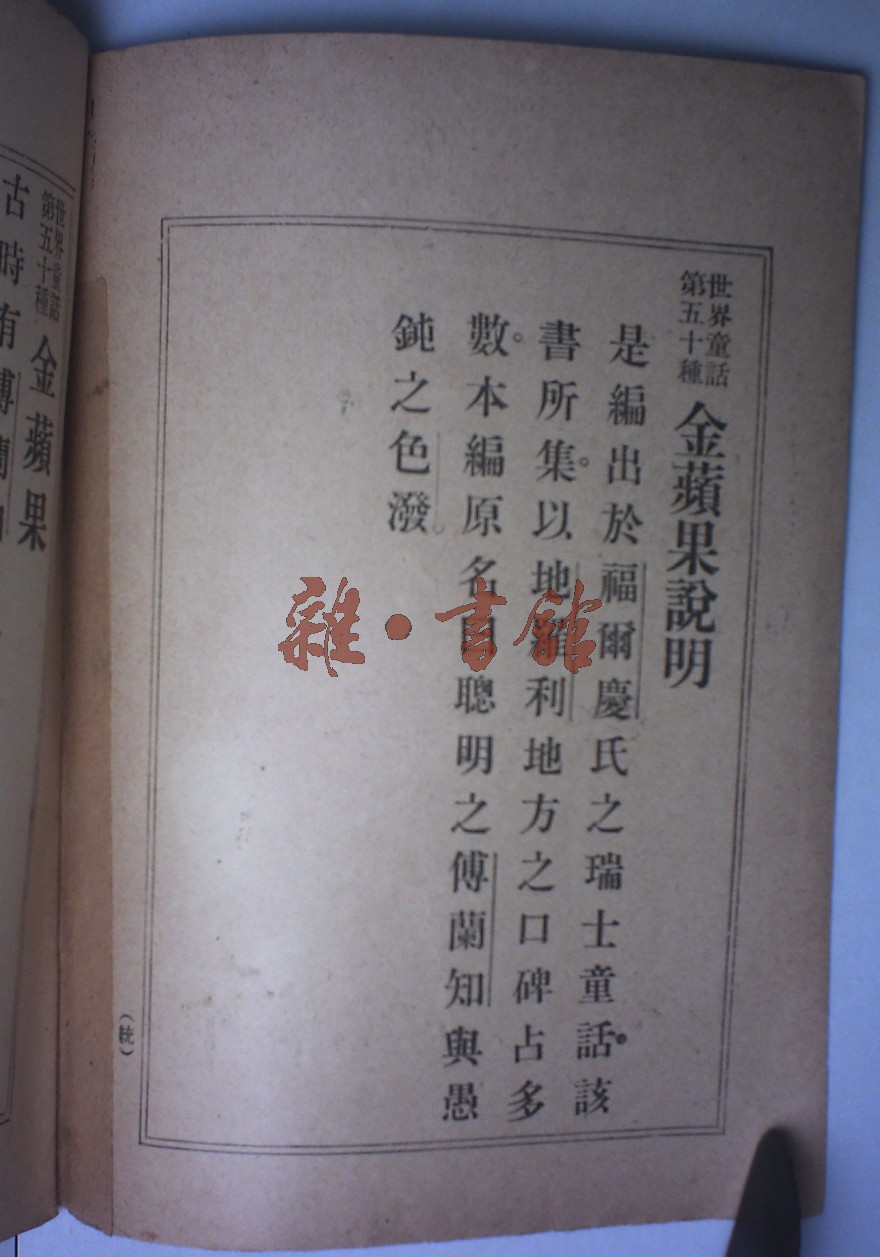 世界童話
第五十種
金蘋果說明
是編出於福爾慶氏之瑞士童話。該
書所集。以地羅利地方之口碑占多
數。本編原名曰聰明之傅蘭知與愚
鈍之色潑。
(統)
世界童話
第五十種
金蘋果
古時有傅蘭
雜·書館